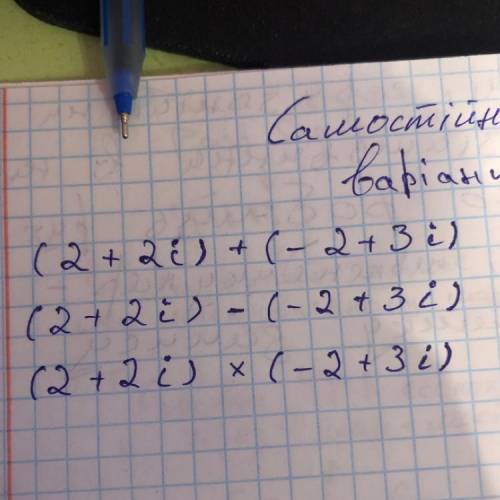 Самостійн
варіан
(2 + 2i) + (- 2 + 3i)
(2 + 2i) - (- 2 + 3i)
(2 + 2i) × (- 2 + 3i)